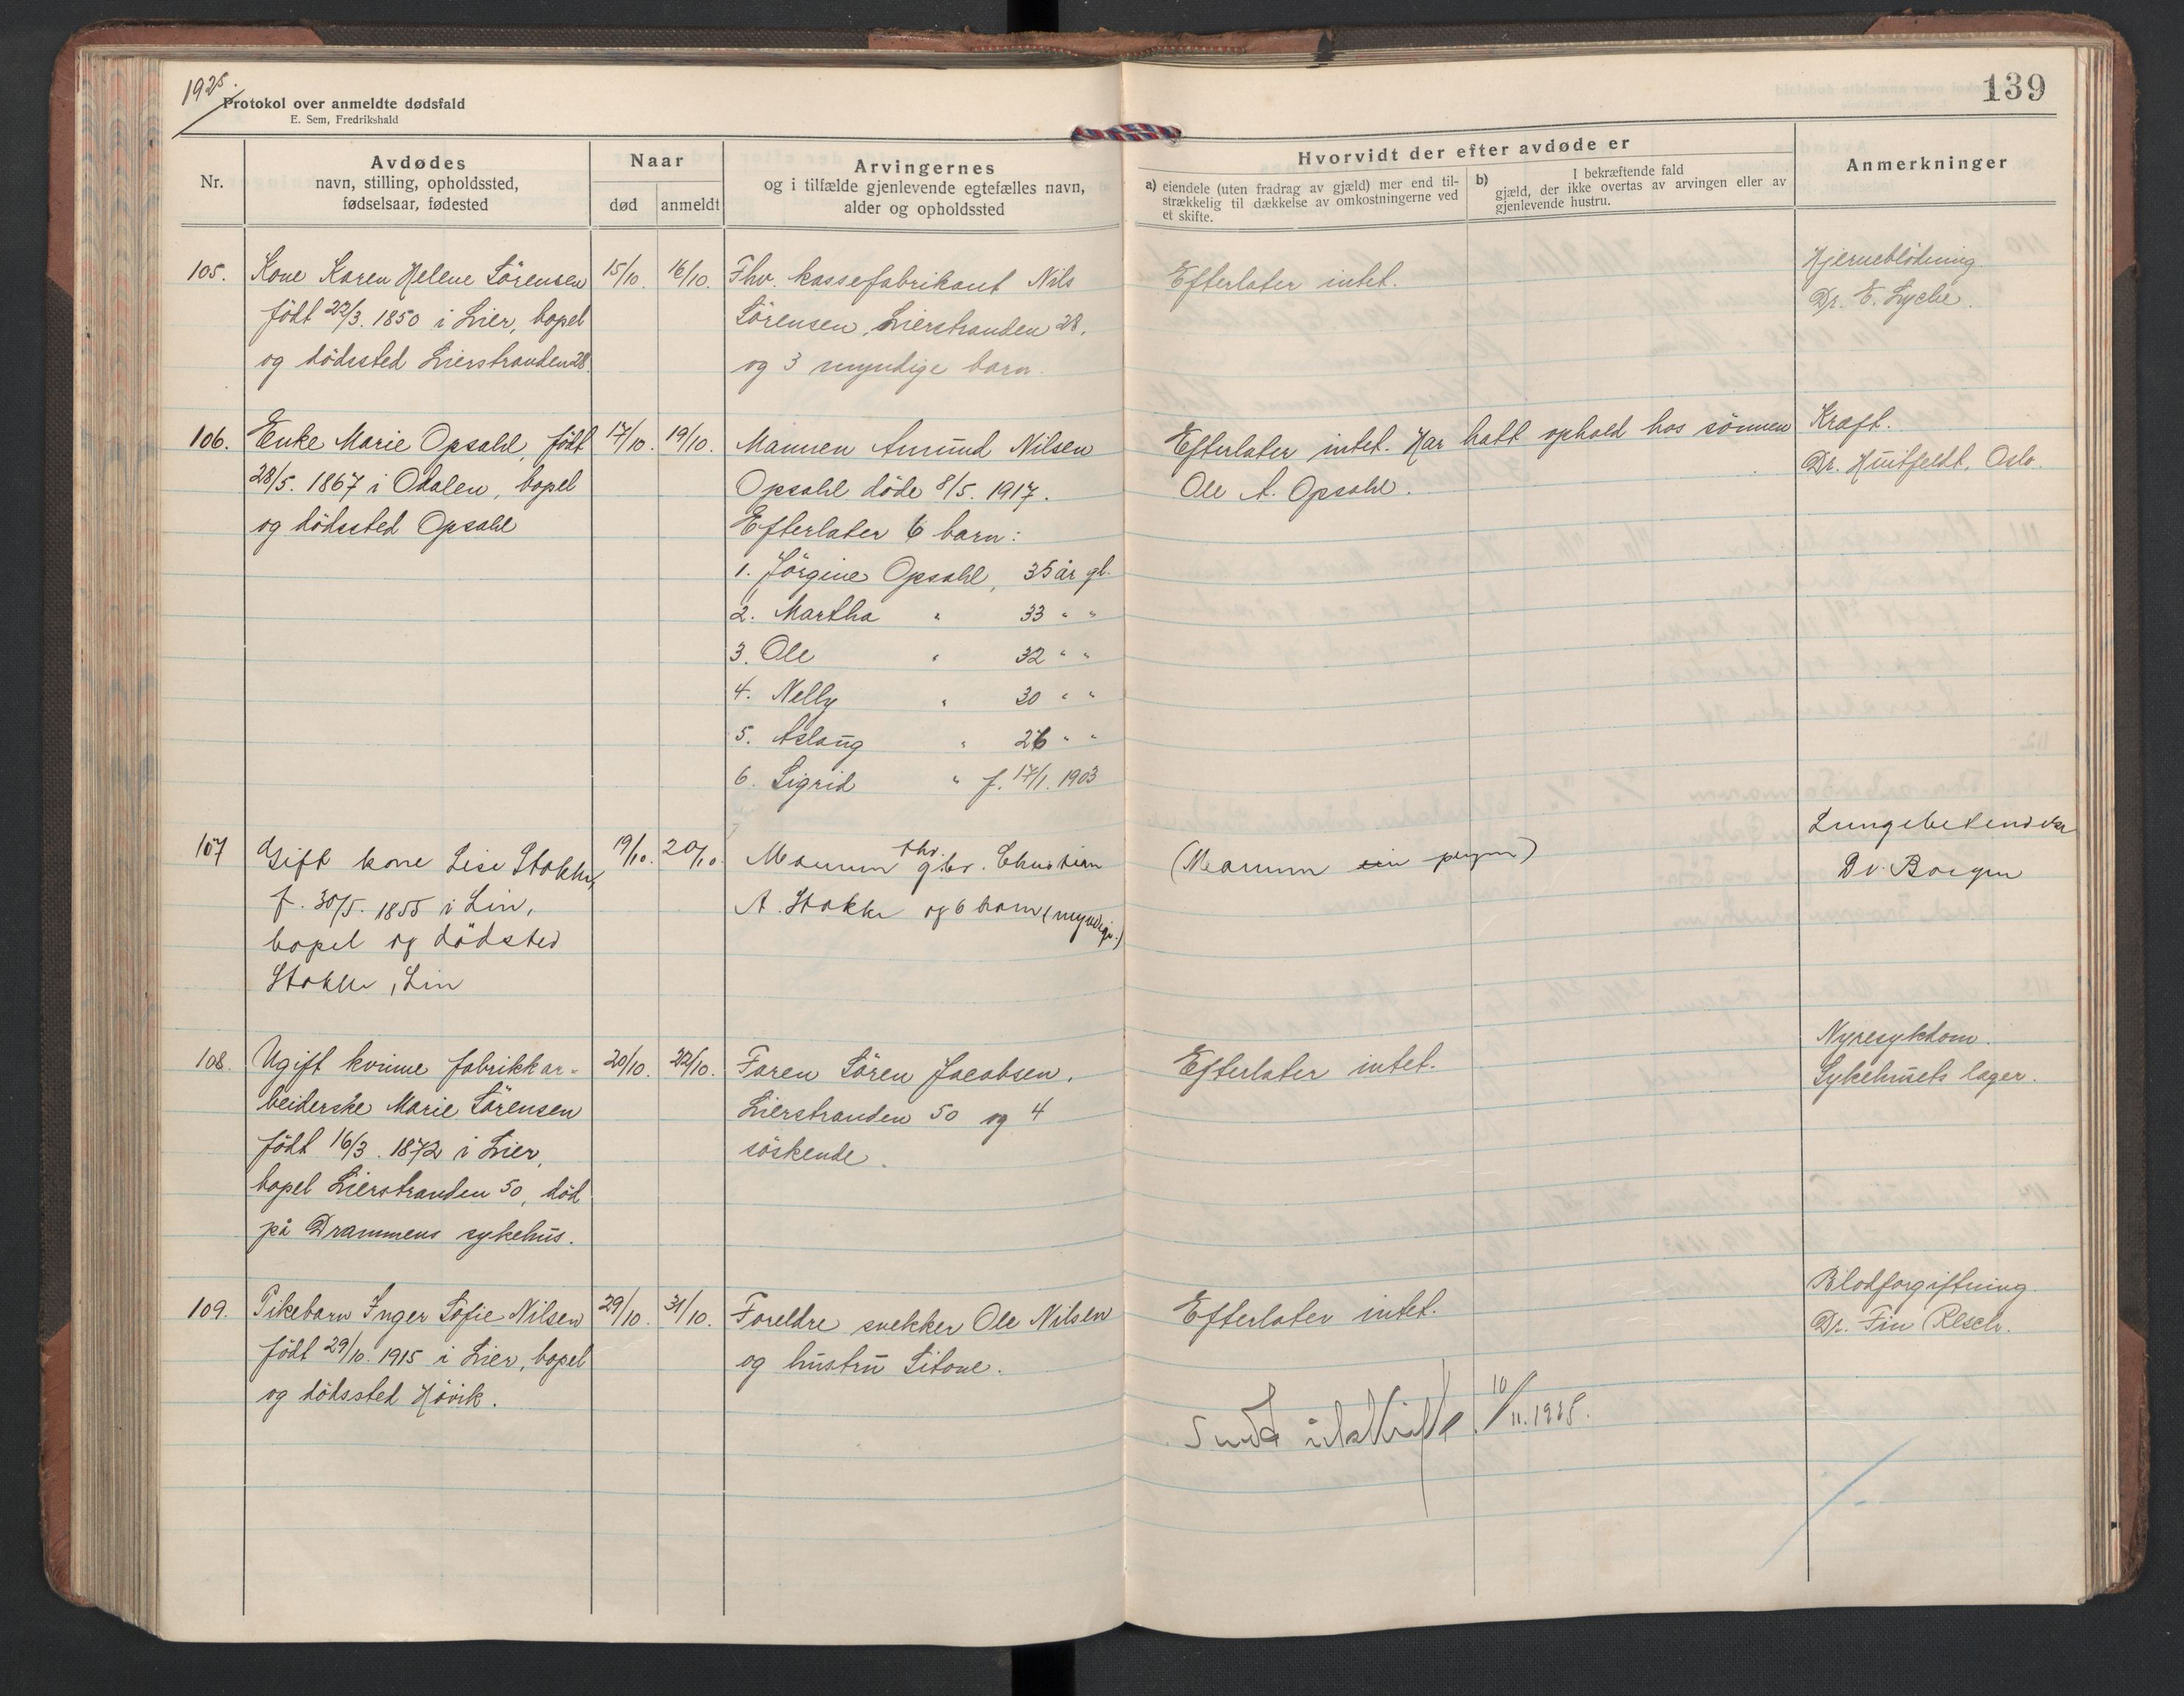 1925.
Protokol over anmeldte dødsfald
E. Sem, Fredrikshald
139
Nr.
Avdødes
navn, stilling, opholdssted,
fødselsaar, fødested
Naar
død
anmeldt
Arvingernes
og i tilfælde gjenlevende egtefælles navn,
alder og opholdssted
Hvorvidt der efter avdøde er
a) eiendele (uten fradrag av gjæld) mer end til-
strækkelig til dækkelse av omkostningerne ved
et skifte.
b) I bekræftende fald
gjæld, der ikke overtas av arvingen eller av
gjenlevende hustru.
Anmerkninger
105.
Kone Karen Helene Sörensen
född 22/3. 1850 i Lier, bopel
og dödssted Lierstranden 28.
15/10.
16/10.
Fhv. kassefabrikant Nils
Sörensen, Lierstranden 28.
og 3 myndige barn.
Efterlater intet.
Hjerneblödning
Dr. E. Lyche.
106.
Enke Marie Opsahl, född
28/5. 1867 i Odalen, bopel
og dödssted Opsahl
17/10.
19/10.
Mannen Amund Nilsen
Opsahl döde 8/5. 1917.
Efterlater 6 barn:
1. Jörgine Opsahl, 35 år gl.
2. Martha " 33 " "
3. Ole " 32 " "
4. Nelly " 30 " "
5. Aslaug " 26 " "
6. Sigrid " f. 17/1. 1903
Efterlater intet. Har hatt ophold hos sönnen
Ole A. Opsahl.
Kræft.
Dr. Huitfeldt, Oslo.
107
Gift kone Lise Stokke,
f. 30/5. 1855 i Lier,
bopel og dödsted
Stokke, Lier
19/10.
20/10.
Mannen fhv. gbr. Christian
A. Stokke og 6 barn (myndige.)
(Mannen
Lungebetendelse
Dr. Borgen
108.
Ugift kvinne fabrikkar-
beiderske Marie Sörensen
född 16/3. 1872 i Lier,
bopel Lierstranden 50, död
på Drammens sykehus.
20/10.
22/10.
Faren Sören Jacobsen,
Lierstranden 50 og 4
söskende.
Efterlater intet.
Nyresykdom.
Sykehusets læger.
109.
Pikebarn Inger Sofie Nilsen
född 29/10. 1915 i Lier, bopel
og dödssted Hövik.
29/10.
31/10.
Foreldre snekker Ole Nilsen
og hustru Sitone.
Efterlater intet.
Blodforgiftning.
Dr. Fin
10/11. 1925.